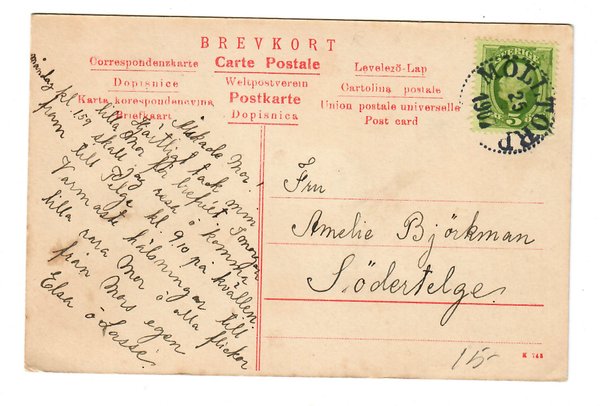 BREVKORT
Correspondenzkarte Carte Postale Levelező-Lap
Dopisnice Weltpostverein Cartolina postale
Karta korespondencyjna Postkarte Union postale universelle
Brefkaart Dopisnica Post card
SVERIGE
5
MÖLLTORP
1907
Älskade Mor!
Hjärtligt tack mm
lilla Mor för brefvet I morgon
måndag kl. 1.50 skall jag resa o komma
fram till Telge kl. 9.10 på kvällen.
Varmaste hälsningar till
lilla rara Mor o alla flickor
från Mors egen
Elsa o Lasse.
Fru
Amelie Björkman
Södertelge.
15-
K 748